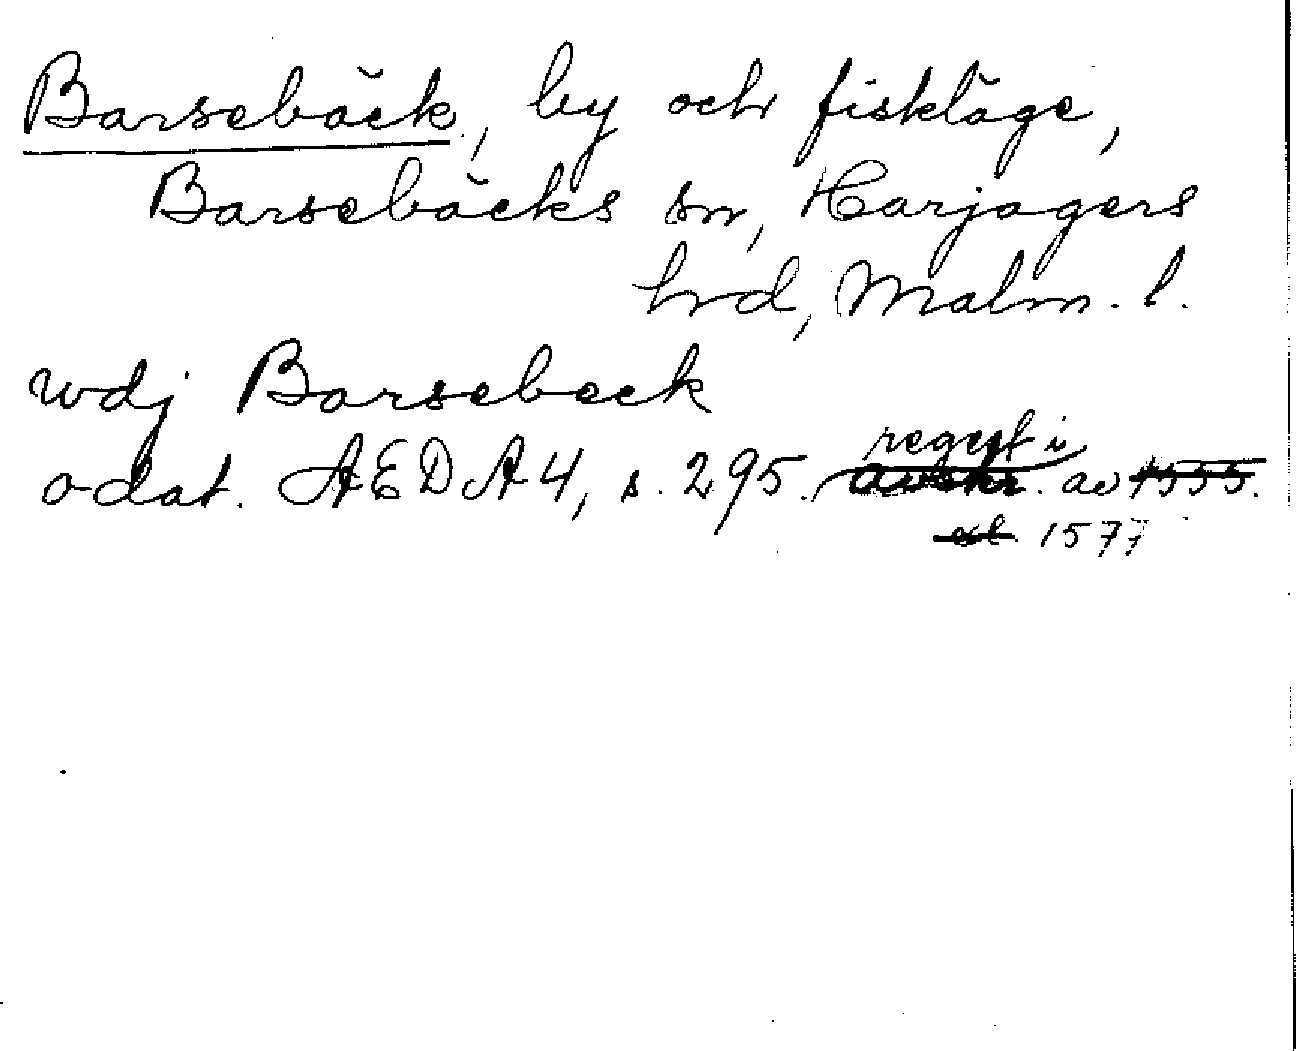 Barsebäck, by och fiskläge,
Barsebäcks sn, Harjagers
hrd, Malm. l.
wdj Barsebeck
odat. AEDA4, s. 295. regest i av 1555.
1577